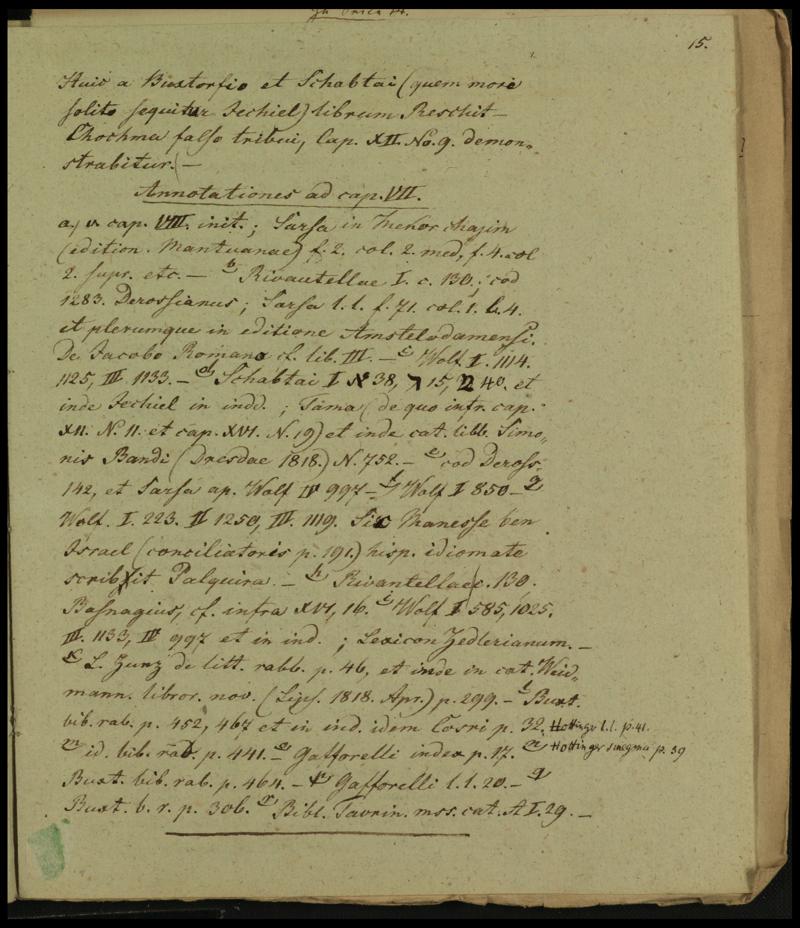 15.
Huic a Buxtorfio et Schabtai (quem more
solito sequitur Jechiel) librum Reschit-
Chochma falso tribui, Cap. XII. No. 9. demon-
strabitur. -
Annotationes ad cap. VII.
a, v. cap. VIII. init.; Sarsa in Mekor chajim
(edition. Mantuanae) f. 2. col. 2. med, f. 4. col
2. supr. etc. - b Rivautellae I. c. 130.; cod
1283. Derossianus; Sarsa l. l. f. 71. col. 1. l. 4.
et plerumque in editione Amstelodamensi.
De Jacobo Romano cf. lib. III. - c Wolf I. 1114.
1125, III 1133. - d Schabtai I א 38, ר 15, מ 40. et
inde Jechiel in indd.; Tama (de quo infr. cap.
XII. N. 11. et cap. XVI. N. 19) et inde cat. libb. Simo-
nis Bandi (Dresdae 1818.) N. 752. - e cod Deross.
142, et Sarsa ap. Wolf IV 997 - f Wolf I 850 - g
Wolf. I. 223. II 1250, III. 1119. Sic Manesse ben
Israel (conciliatoris p. 191.) hisp. idiomate
scribit Palquira. - h Rivautellae c. 130.
Basnagius, cf. infra XVI, 16. i Wolf I 585, 1025.
III. 1133, IV 997 et in ind.; Lexicon Zedlerianum. -
k L. Zunz de litt. rabb. p. 46, et inde in cat. Weid-
mann. libror. nov. (Lips. 1818. Apr.) p. 299. - l Buxt.
bib. rab. p. 452, 467 et in ind. idem Cosri p. 32. Hottinger l. l. p. 41.
m id. bib. rab. p. 441. - o Gafforelli index p. 17. n Hottinger smegma p. 39
Buxt. bib. rab. p. 464. - p Gafforelli l. l. 20. - q
Buxt. b. r. p. 306. r Bibl. Taurin. mss. cat. A I. 29. -